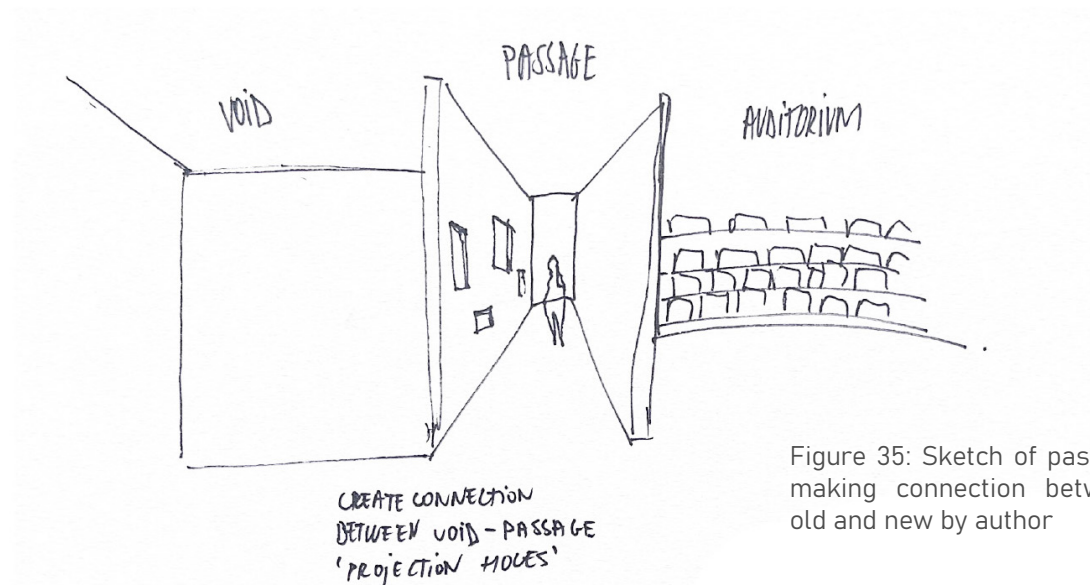 VOID
PASSAGE
AUDITORIUM
CREATE CONNECTION
BETWEEN VOID - PASSAGE
'PROJECTION HOLES'
Figure 35: Sketch of pas
making connection betw
old and new by author